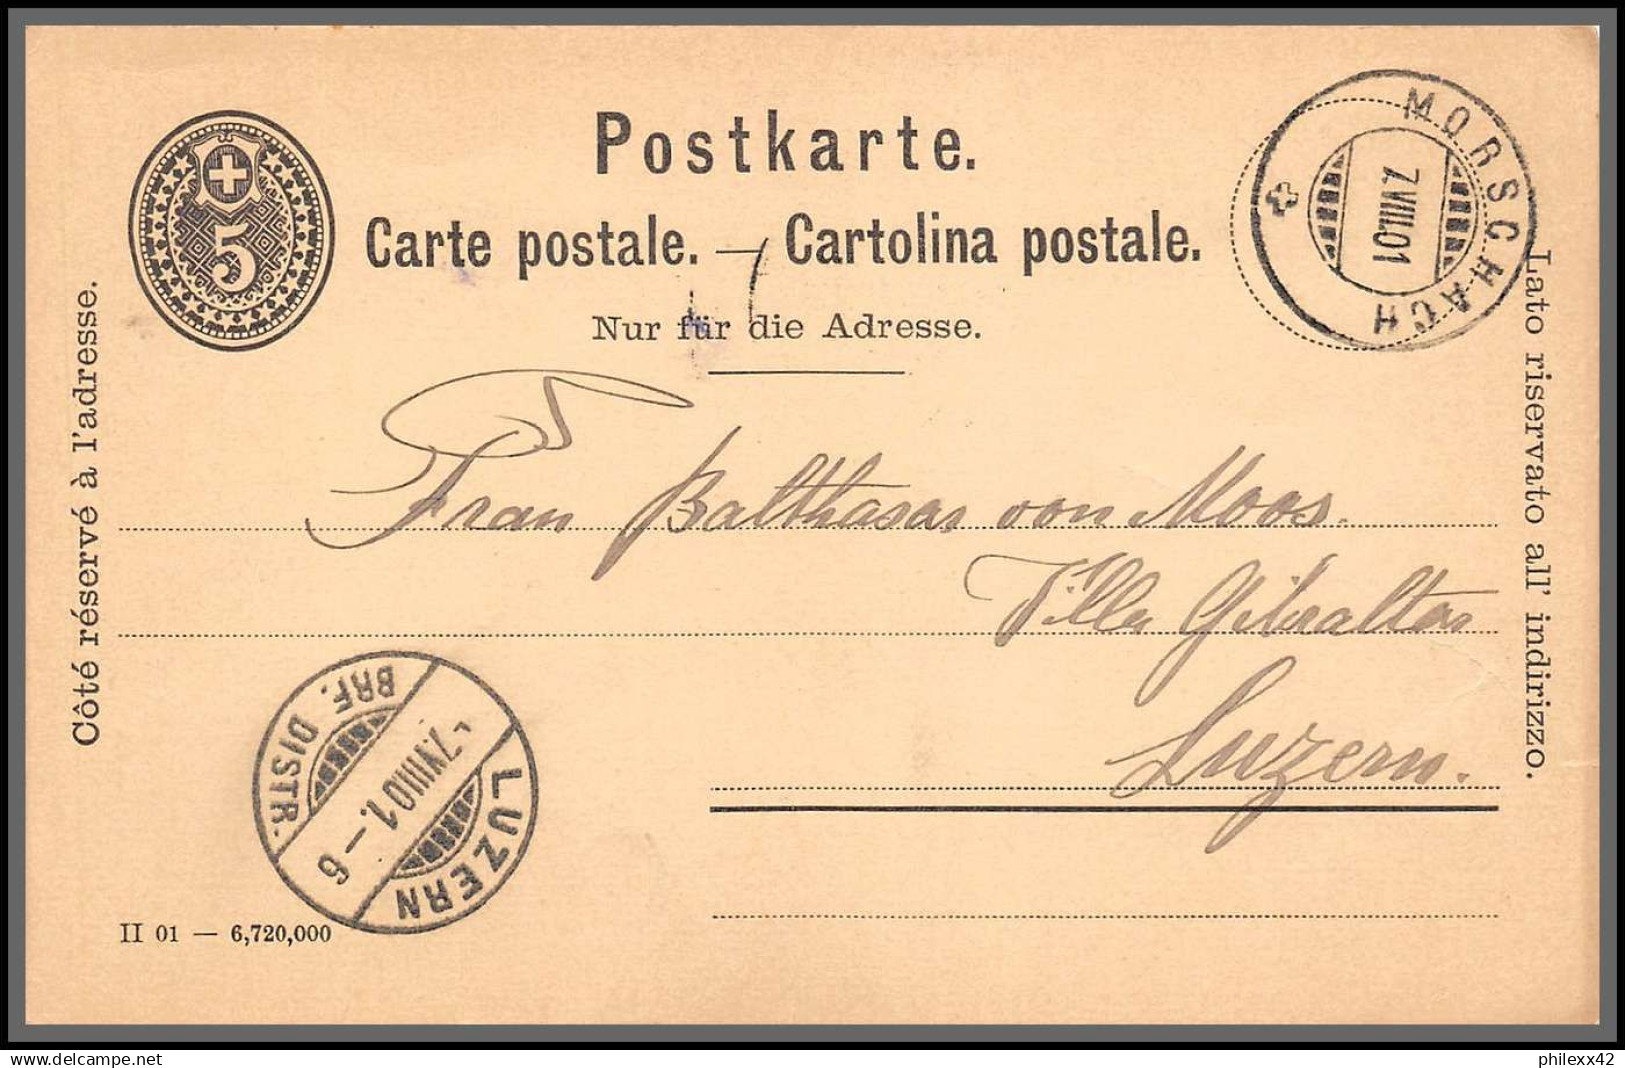 Postkarte.
Carte postale. — Cartolina postale.
Nur für die Adresse.
5
MORSCHACH
7.VIII.01
Côté réservé à l'adresse.
Lato riservato all' indirizzo.
Frau Balthasar von Moos.
Villa Gibraltar
Luzern.
LUZERN
7.VIII.01.–6
BRF. DISTR.
II 01 — 6,720,000
www.delcampe.net
philexx42